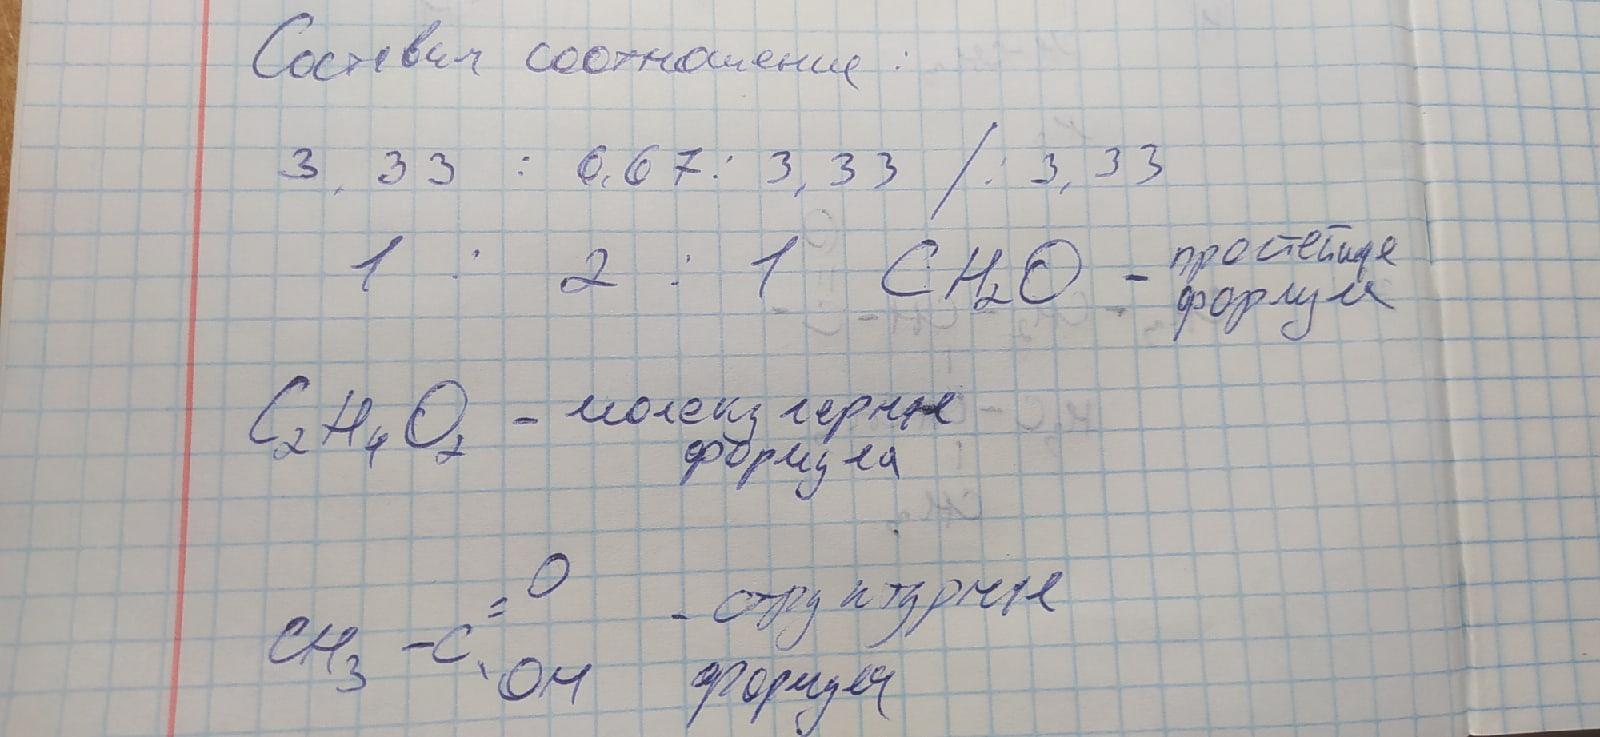 Составим соотношение:
3,33 : 6,67 : 3,33 / : 3,33
1 : 2 : 1 CH₂O - простейшая
формула
C₂H₄O₂ - молекулярная
формула
O
CH₃ - C = - структурная
OH формула